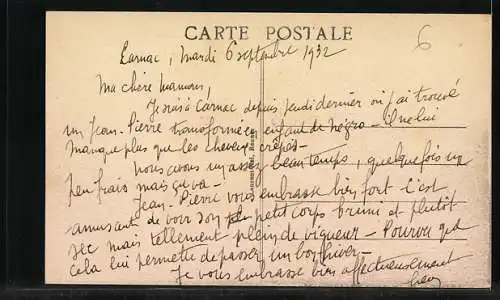 CARTE POSTALE
6
Carnac, Mardi 6 septembre 1932
Ma chère maman,
Je suis à Carnac depuis jeudi dernier où j'ai trouvé
un Jean-Pierre transformé en enfant de négro - il ne lui
manque plus que les cheveux crêpés -
Nous avons un assez beau temps, quelquefois un
peu frais mais ça va -
Jean-Pierre vous embrasse bien fort - C'est
amusant de voir son petit corps bruni et plutôt
sec mais tellement plein de vigueur - Pourvu que
cela lui permette de passer un bon hiver -
Je vous embrasse bien affectueusement